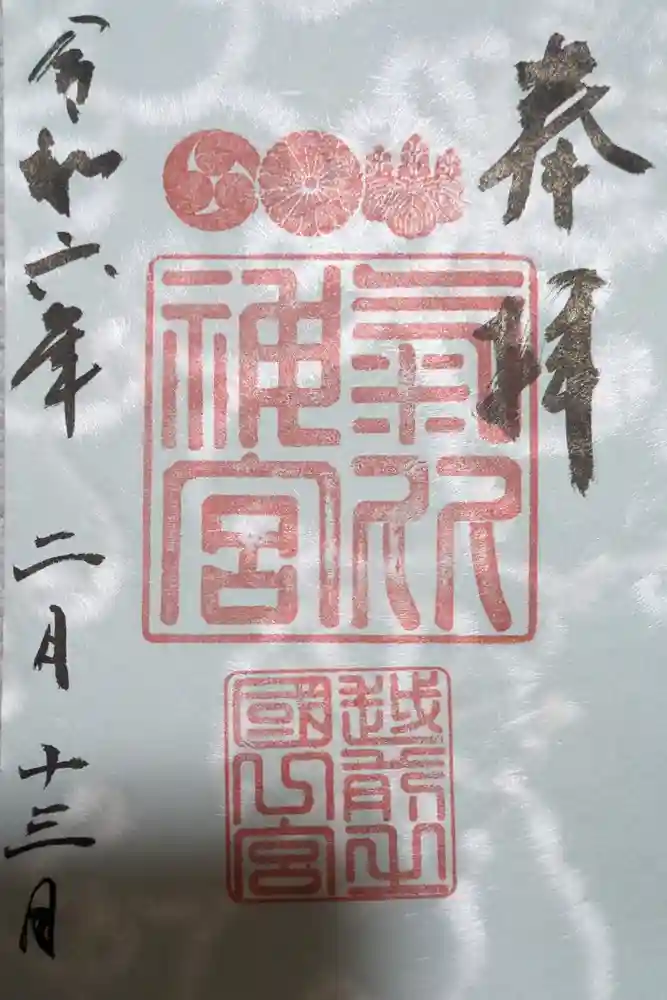 奉拝
氣比
神宮
越前之
國一宮
令和六年 二月十三日